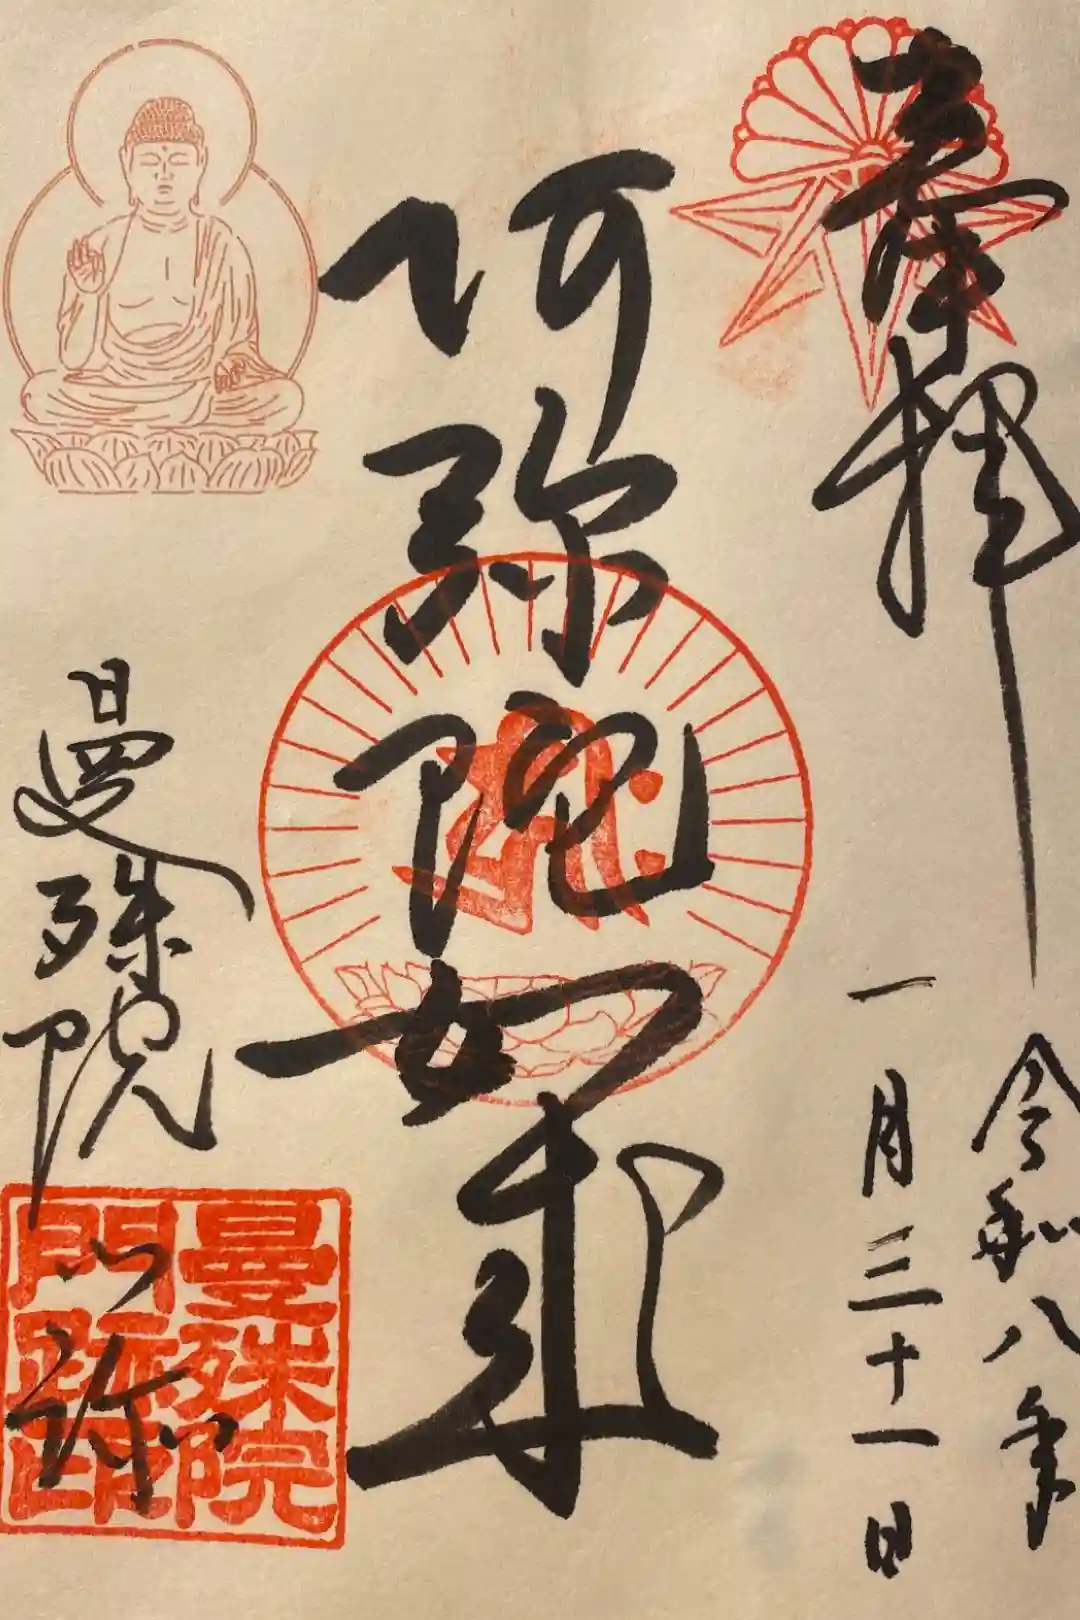 奉拝
令和八年
一月三十一日
阿弥陀如来
曼殊院
門跡
曼殊院
門跡印